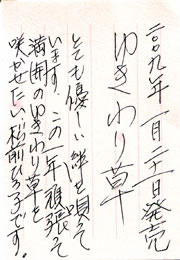 二〇〇九年一月二十一日発売
ゆきわり草
とても優しい絆を唄って
います。この一年頑張って
満開のゆきわり草を
咲かせたい松前ひろ子です。